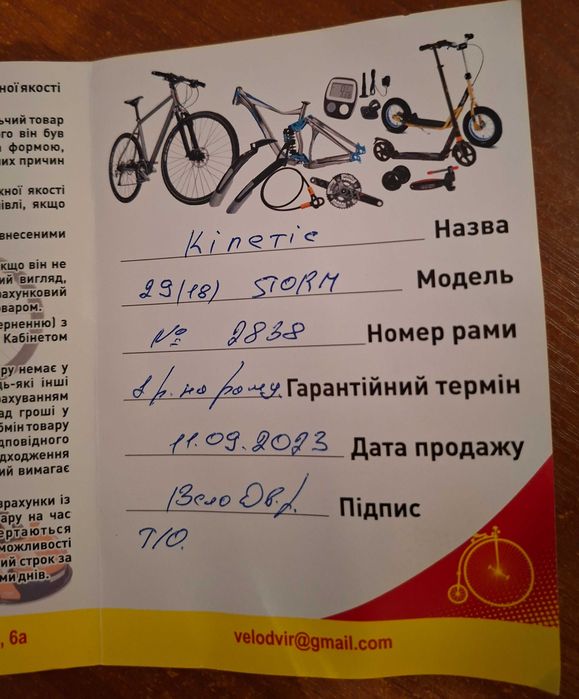 ної якості
ьчий товар
ого він був
а формою,
них причин
жної якості
івлі, якщо
внесеними
якщо він не
ий вигляд,
рахунковий
оваром.
ерненню) з
Кабінетом
ару немає у
дь-які інші
рахуванням
ад гроші у
бмін товару
дповідного
дходження
ий вимагає
врахунки із
вару на час
ертаються
можливості
ий строк за
ми днів.
, 6а
Кіпетіс Назва
29(18) STORM Модель
№ 2838 Номер рами
1 р. на раму. Гарантійний термін
11.09.2023 Дата продажу
Вело Дв.р. Підпис
velodvir@gmail.com